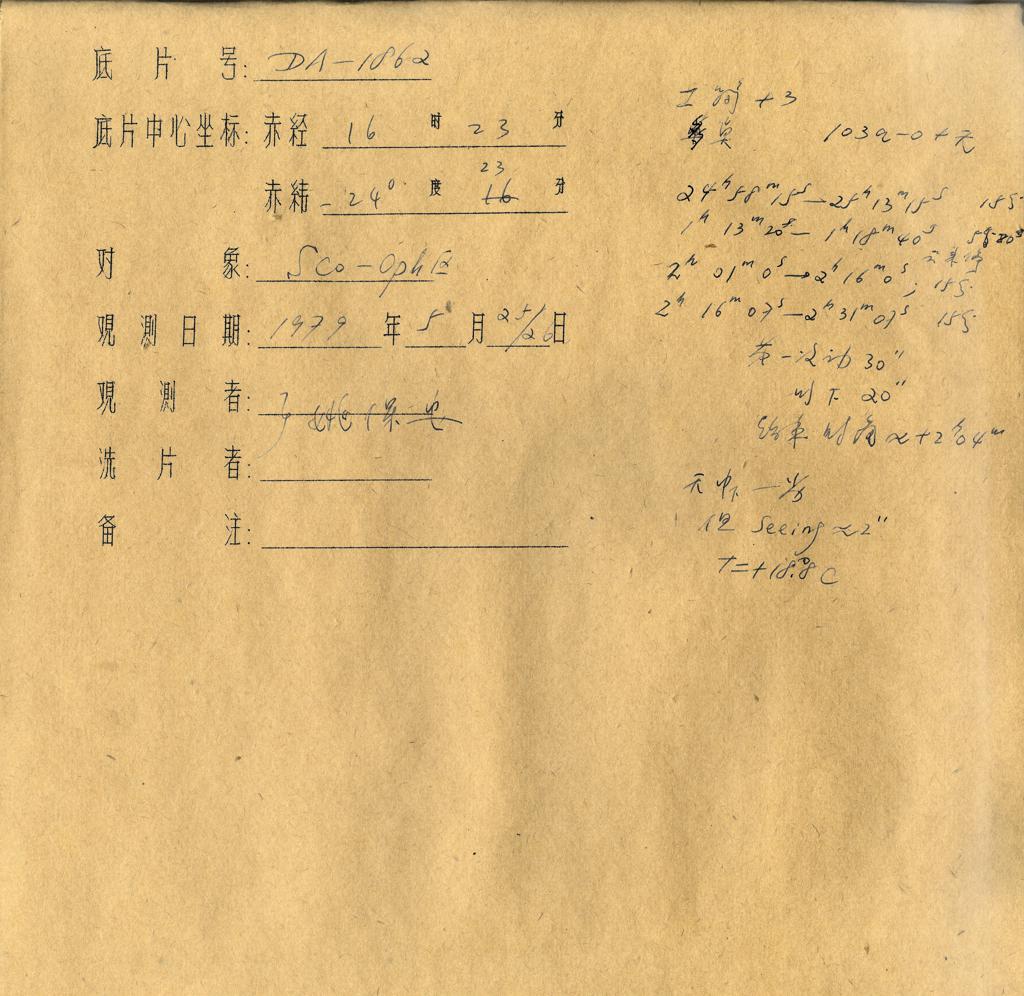 底片号: DA-1862
底片中心坐标: 赤经 16 时 23 分
23
赤纬 -24° 度 16 分
对象: Sco-Oph区
观测日期: 1979 年 5 月 25/26 日
观测者:
洗片者:
备注:
+3
103a-O +无
24ʰ58ᵐ15ˢ—25ʰ13ᵐ15ˢ 15分
1ʰ13ᵐ20ˢ—1ʰ18ᵐ40ˢ 5分20ˢ
云来停
2ʰ01ᵐ0ˢ→2ʰ16ᵐ0ˢ; 15分
2ʰ16ᵐ07ˢ—2ʰ31ᵐ07ˢ 15分
第一次动 30"
以下 20"
结束时角 +2ʰ04ᵐ
一步
但 Seeing ≈2"
T=+18.8°C